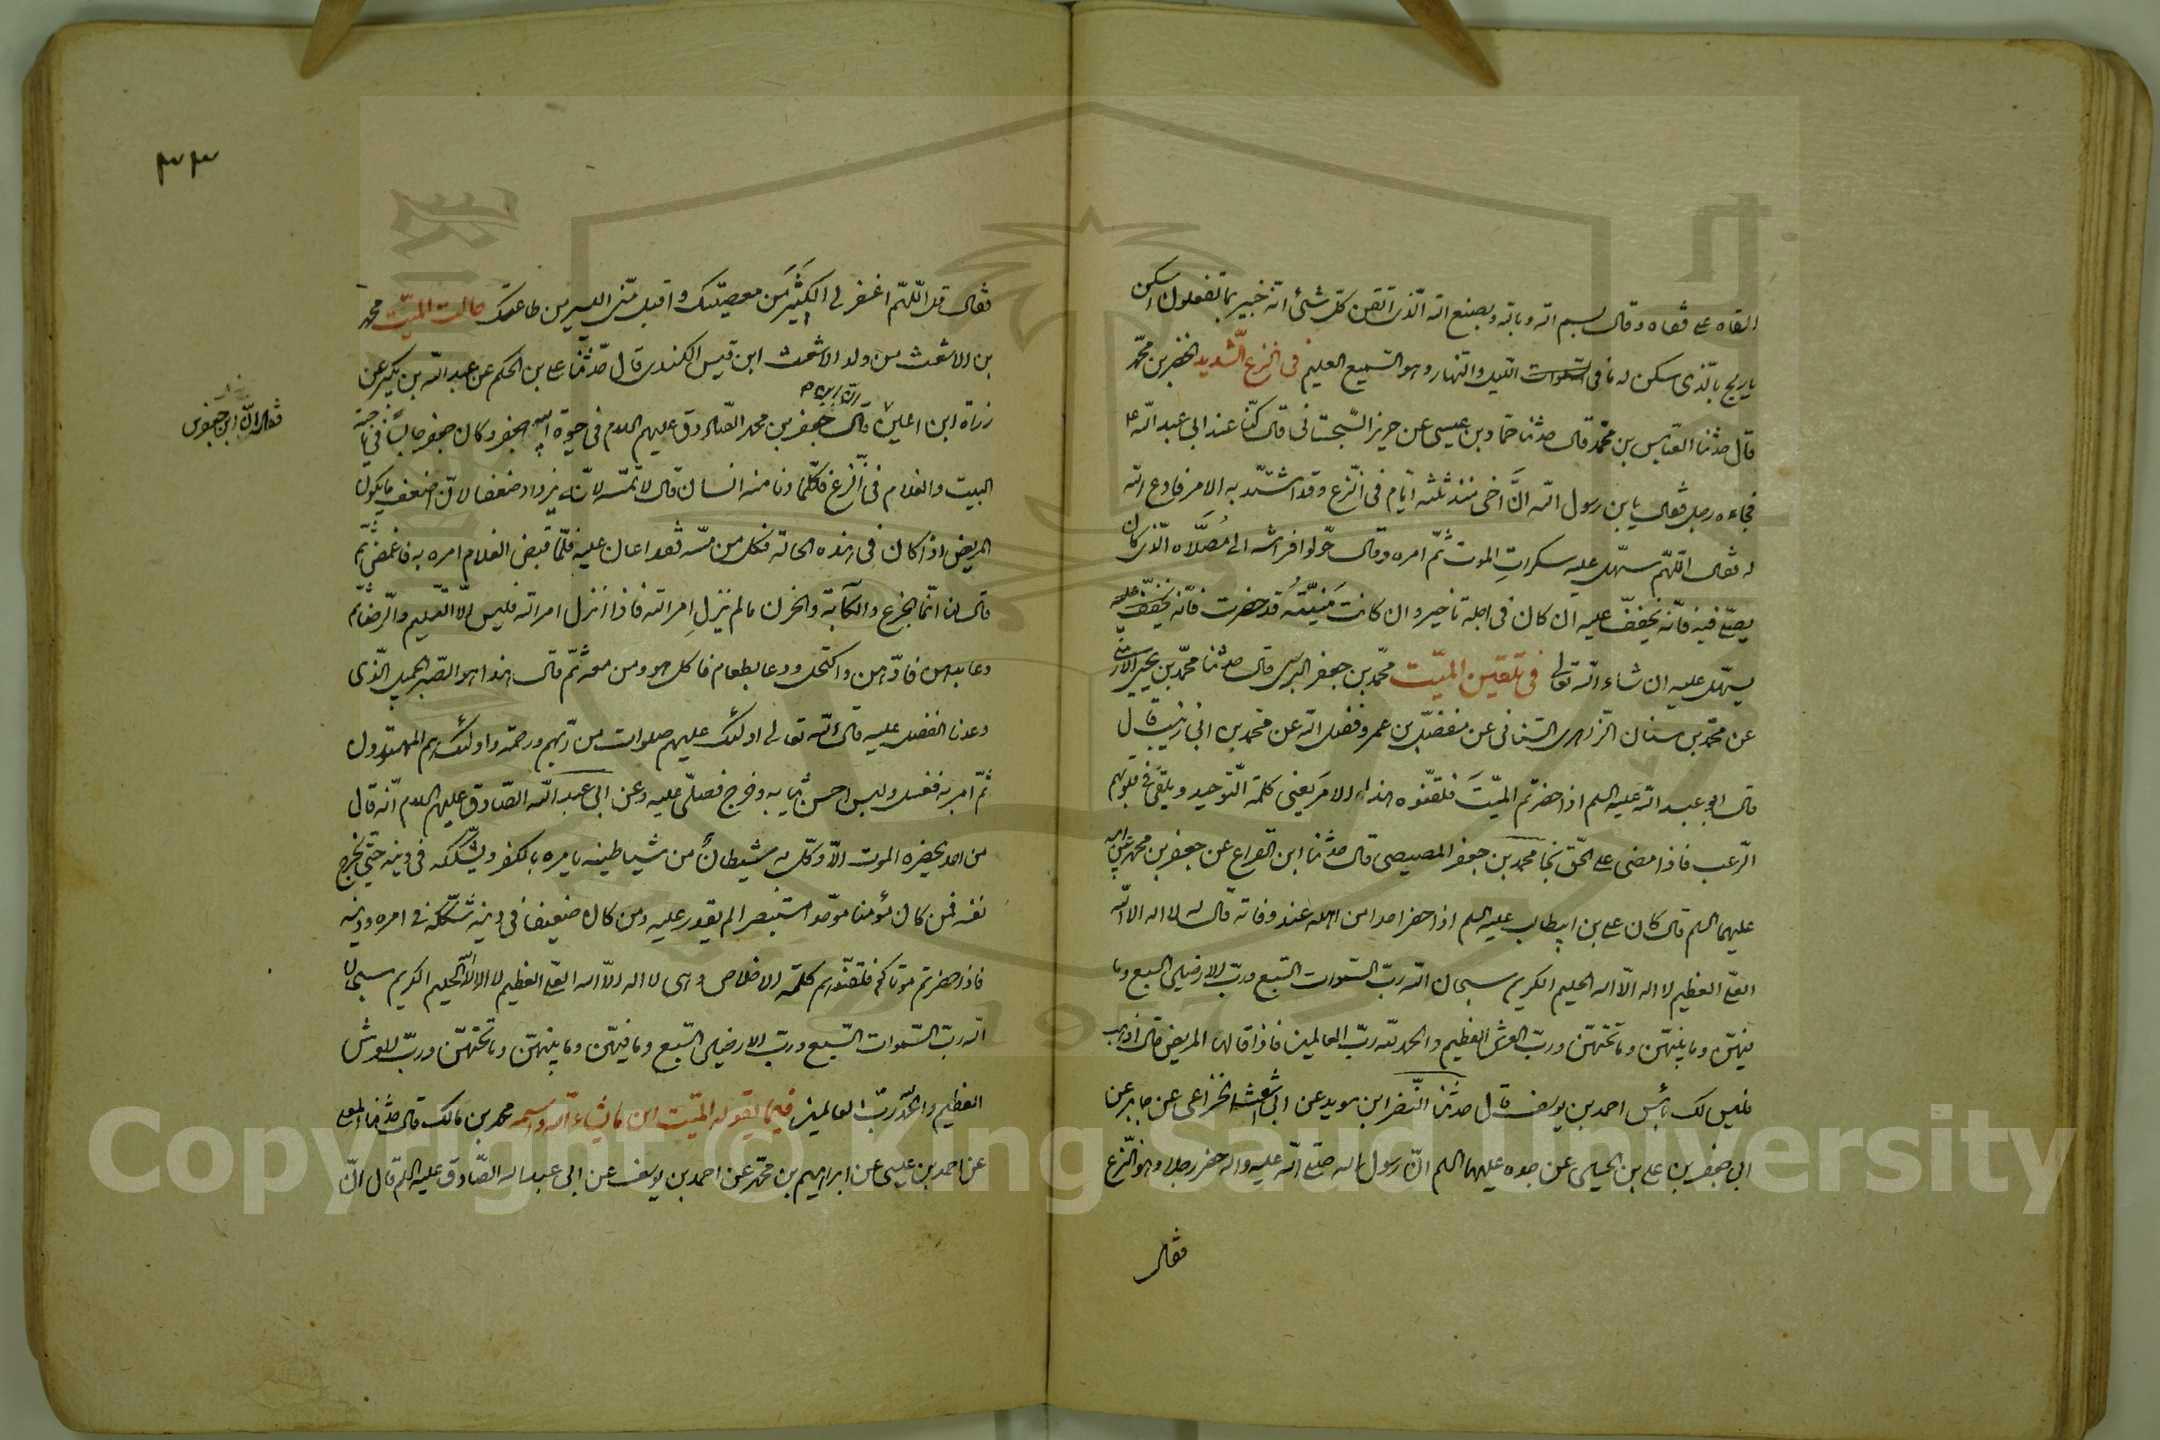 القاه على قفاه وقال بسم الله وبالله وبصنع الله الذى اتقن كل شئ انه خبير بما تفعلون اسكن
ياريح بالذى سكن له ما فى السموات الليل والنهار وهو السميع العليم فى النزع الشديد الخضر بن محمد
قال حدثنا العباس بن محمد قال حدثنا حماد بن عيسى عن حريز السجستانى قال كنا عند ابى عبد الله ع
فجاءه رجل فقال يابن رسول الله انّ اخى منذ ثلثه ايام فى النزع وقد اشتد به الامر فادع الله
له فقال اللهم سهّل عليه سكرات الموت ثم امره وقال حولوا فراشه الى مُصَلّاه الذى كان
يصلى فيه فانه يخفف عليه ان كان فى اجله تاخير وان كانت مَنِيّتُه قد حضرت فانه يخفف عليه
يسهل عليه ان شاء الله تعالى فى تلقين الميّت محمد بن جعفر البرسى قال حدثنا محمد بن يحيى الارمنى
عن محمد بن سنان الزاهرى السنانى عن مفضل بن عمر وفضل الله عن محمد بن ابى زينب قال
قال ابو عبد الله عليه السلم اذا حضرتم الميّتَ فلقنوه هذا الامر يعنى كلمة التوحيد ويلقى فى قلوبهم
الرعب فاذا مضى على الحق نجا محمد بن جعفر المصيصى قال حدثنا ابن القراع عن جعفر بن محمد عن ابيه
عليهما السلم قال كان على بن ابيطالب عليه السلم اذا حضر احدا من اهله عند وفاته قال له لا اله الا الله
العلى العظيم لا اله الا الله الحليم الكريم سبحان الله ربّ السموات السبع وربّ الارضين السبع وما
فيهنّ وما بينهنّ وما تحتهنّ وربّ العرش العظيم والحمد لله ربّ العالمين فاذا قالها المريض قال اذهب
فليس لك بأس احمد بن يوسف قال حدثنا النضر ابن سويد عن ابى اشعث الخزاعى عن جابر عن
ابى جعفر بن على بن الحسين عن جده عليهما السلم انّ رسول الله صلى الله عليه واله حضر رجلا وهو فى النزع
فقال
٣٣
فقال قل اللّهمّ اغفر لى الكثير من معصيتك واقبل منّى اليسير من طاعتك حالت الميّت محمد
بن الاشعث من ولد الاشعث ابن قيس الكندى قال حدثنا على بن الحكم عن عبد الله بن بكير عن
زراة ابن اعلين قال جعفر بن محمد الصادق عليهم السلام فى حيوة ابيه ابى جعفر وكان جعفر جالسًا فى ناحية
البيت والغلام فى النزع فكلما دنا منه انسان قال لا تمسّه لانه يزداد ضعفا لان اضعف ما يكون
المريض اذا كان فى هذه الحاله فكل من مسّه فقد اعان عليه فلمّا قبض الغلام امره به فاغمض ثمّ
قال لنا انما الجزع والكآبة والحزن ما لم ينزل امر الله فاذا نزل امر الله فليس الّا التسليم والرضا ثم
دعا بدهن فادّهن واكتحل ودعا بطعام فاكل هو ومن معه ثمّ قال هذا هو الصبر الجميل الّذى
وعدنا الفضل عليه قال الله تعالى اولئك عليهم صلوات من ربهم ورحمة واولئك هم المهتدون
ثمّ امر به فغسل ولبس احسن ثيابه وخرج فصلّى عليه وعن ابى عبد الله الصادق عليهم السلام انّه قال
من احد يحضره الموت الّا وكّل به شيطانٌ من شياطينه يامره بالكفر ويشكّكه فى دينه حتى يخرج
نفسه فمن كان مؤمنا موحدا مستبصرا لم يقدر عليه ومن كان ضعيفا فى دينه شككه فى امره ودينه
فاذا حضرتم موتاكم فلقنوهم كلمة الاخلاص وهى لا اله الا الله العلى العظيم لا اله الا الله الحليم الكريم سبحان
الله ربّ السموات السبع وربّ الارضين السبع وما فيهنّ وما بينهنّ وما تحتهنّ وربّ العرش
العظيم والحمد لله ربّ العالمين فيما يقوله الميّت ان ما يشاء الله واسمه محمد بن مالك قال حدثنا المعلى
عن احمد بن عيسى عن ابراهيم بن محمد عن احمد بن يوسف عن ابى عبد الله الصّادق عليه السلم قال انّ
Copyright © King Saud University
1957